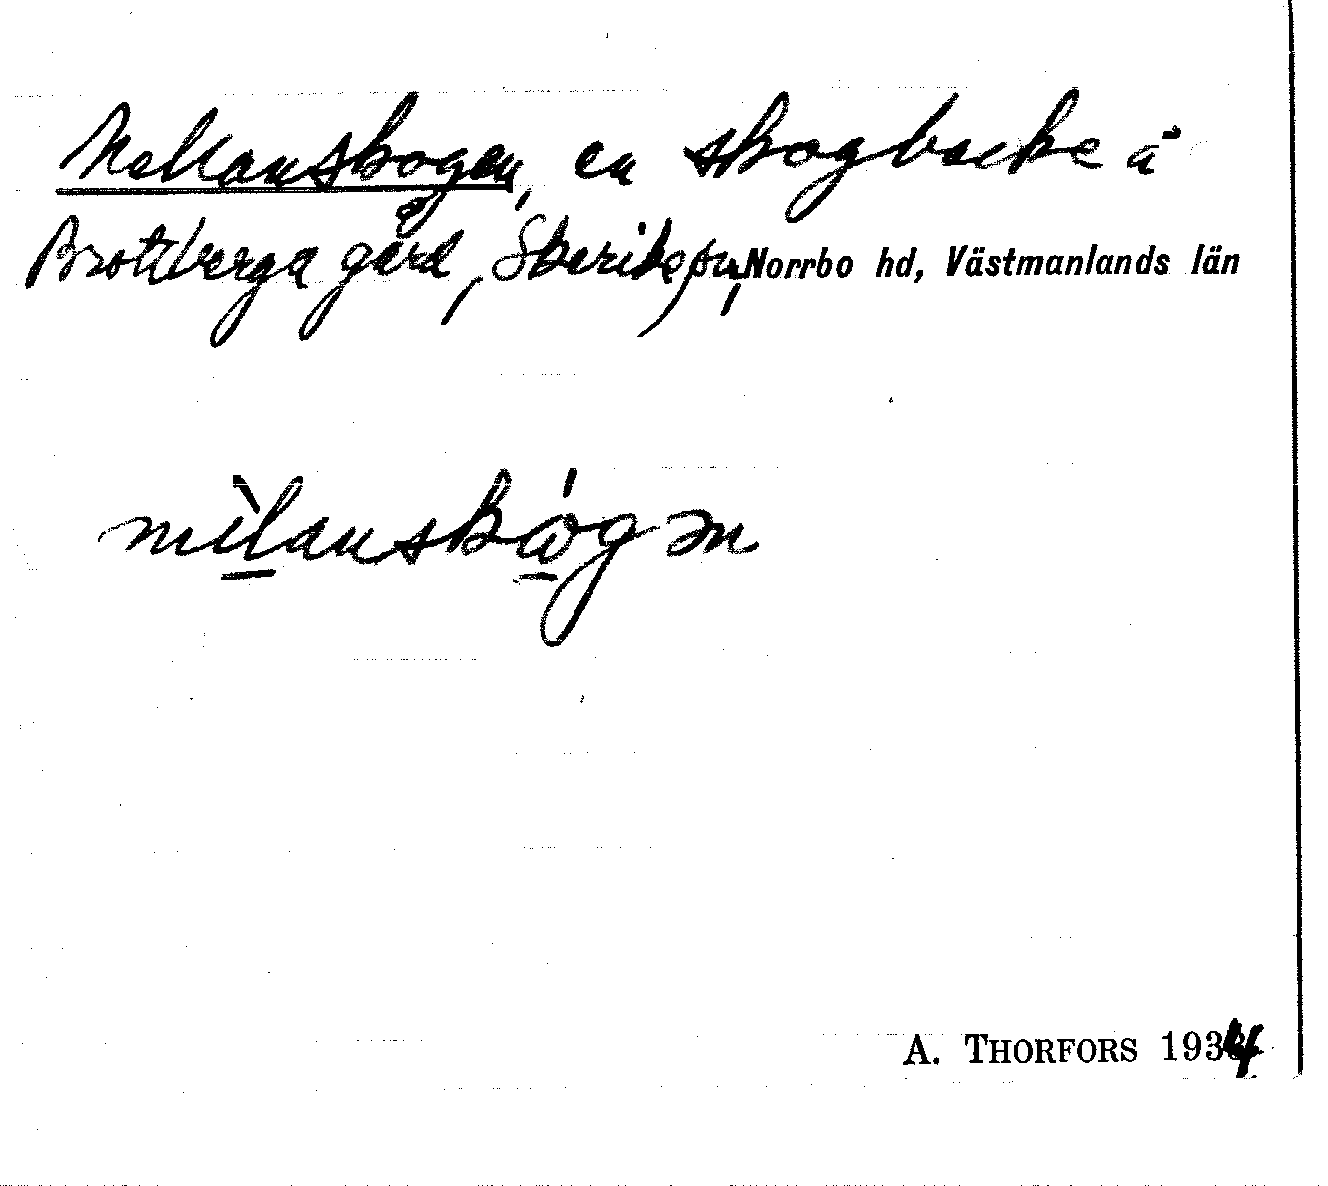 Mellanskogen, en skogbacke å
Brottberga gård, Skerike sn, Norrbo hd, Västmanlands län
mèlanskó̱gən
A. THORFORS 1934